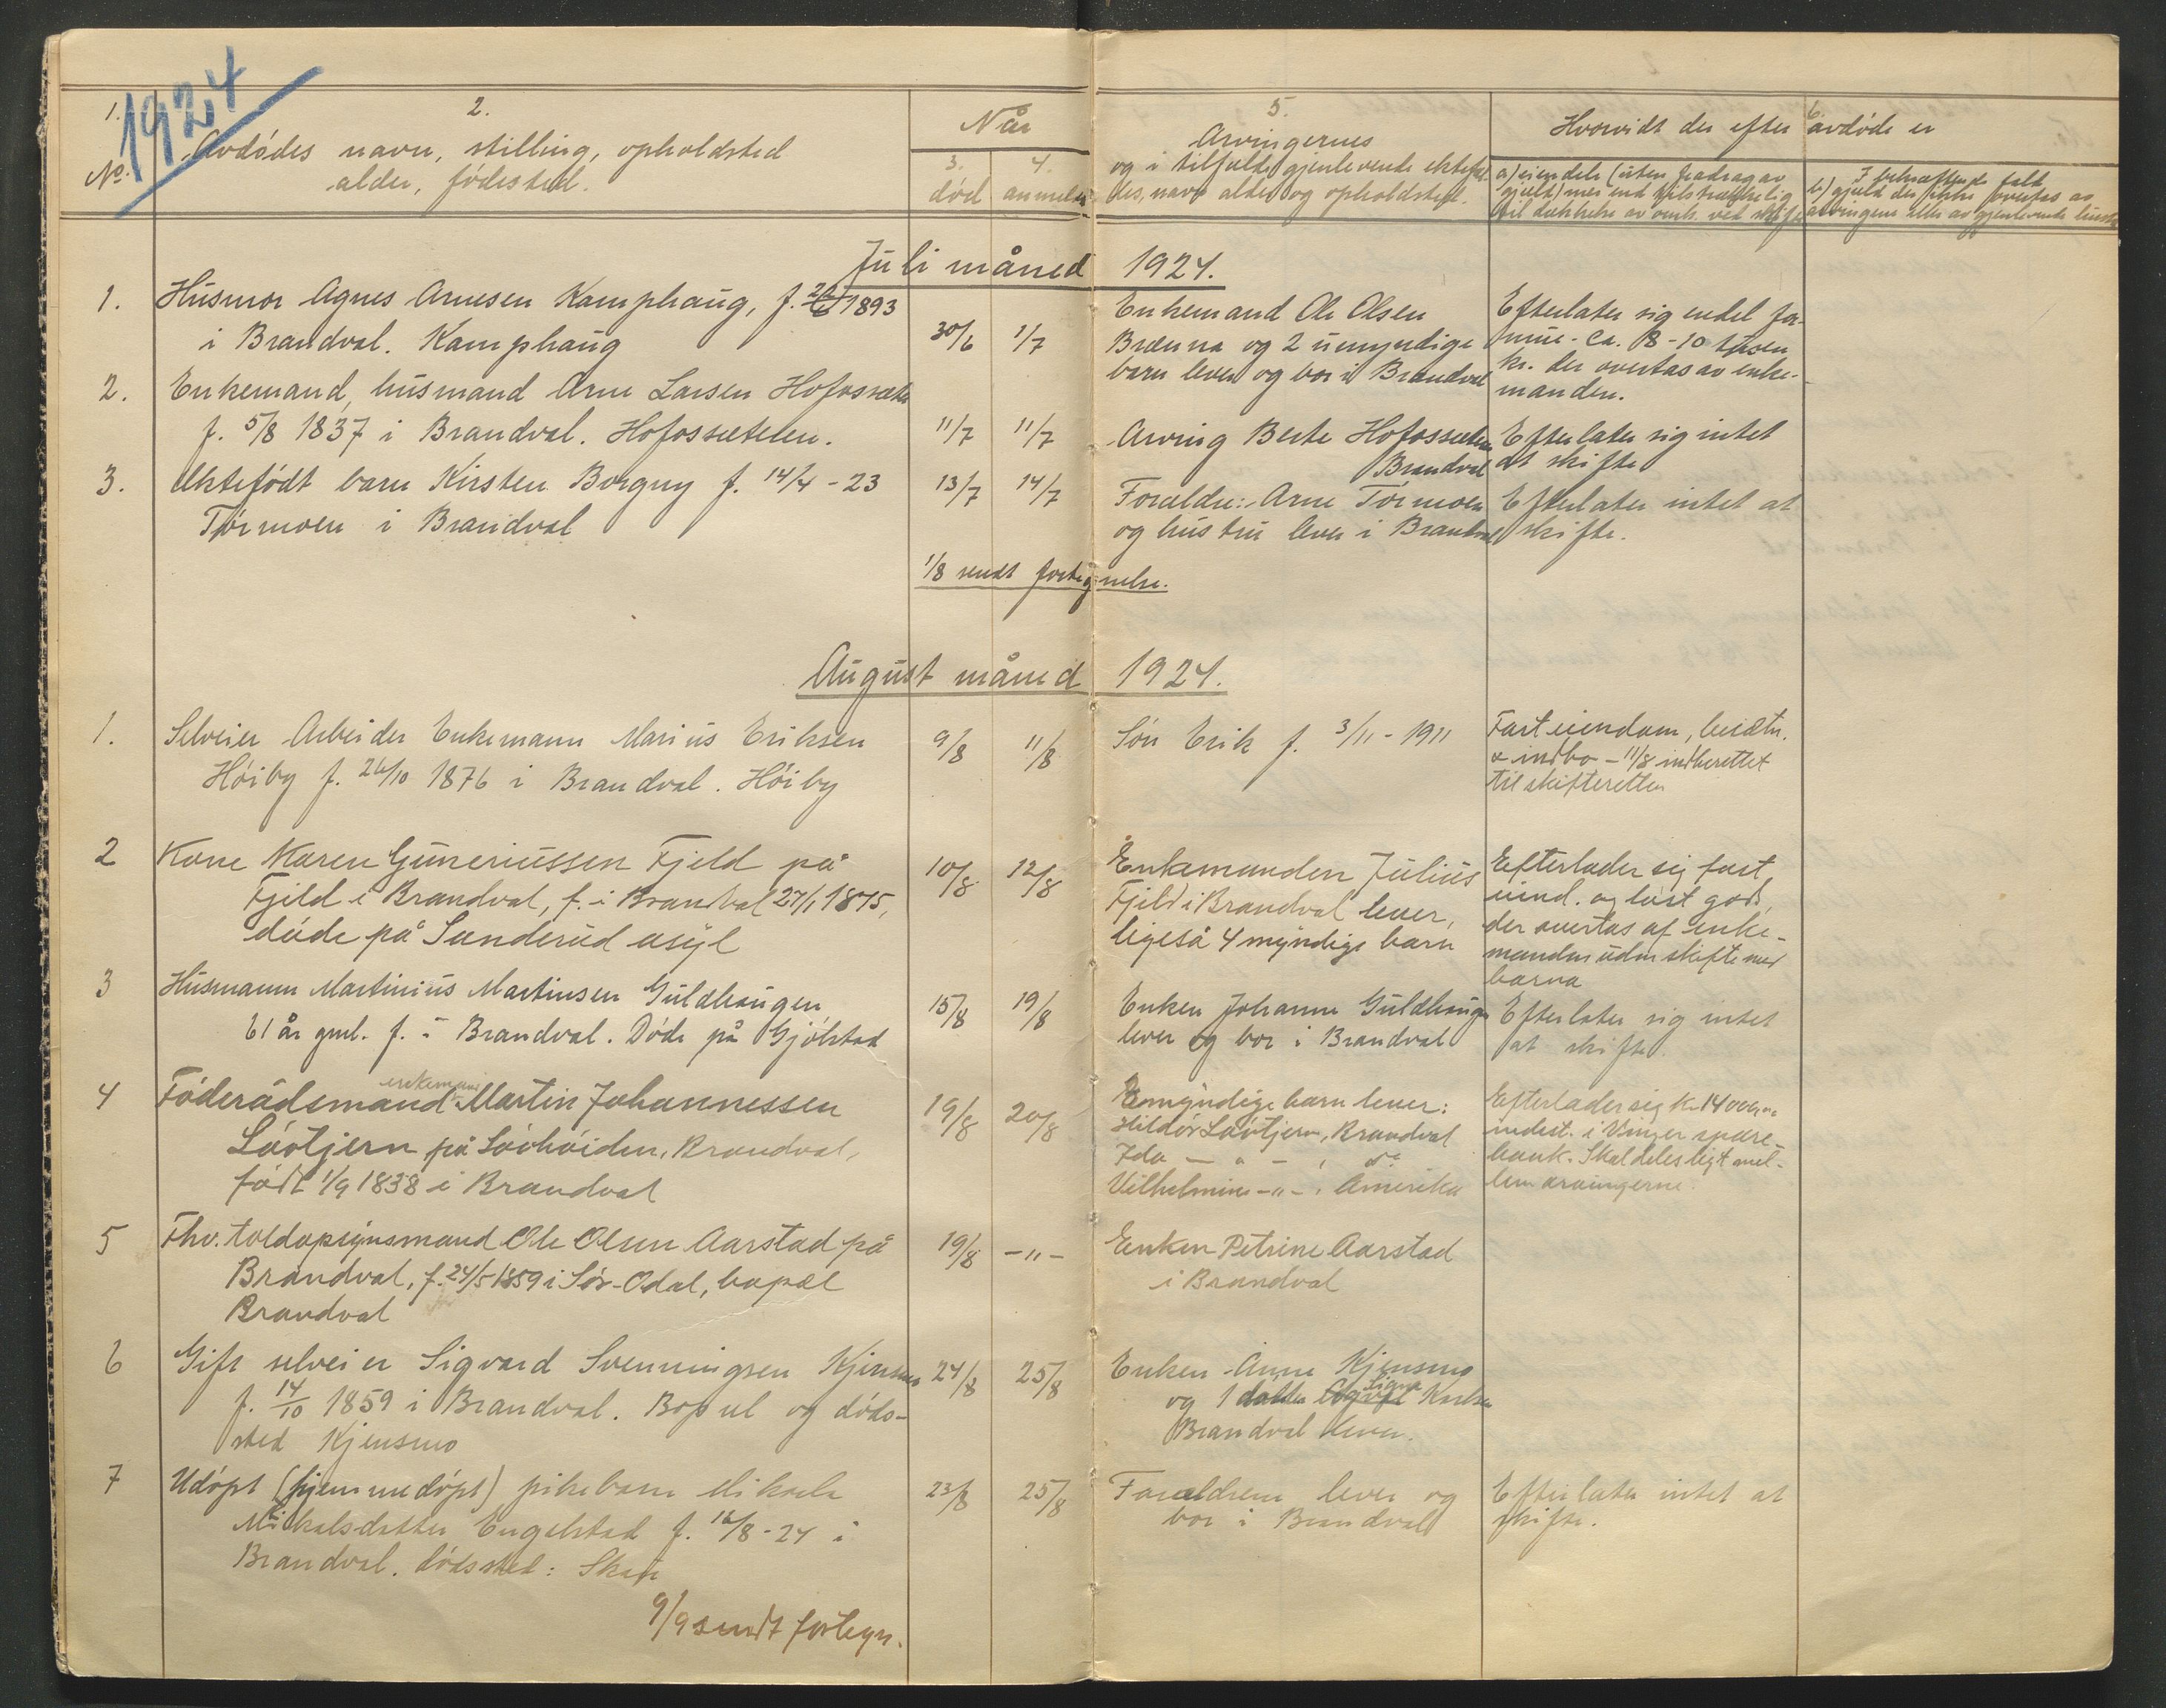 1924
1.
No.
2.
Avdødes navn, stilling, opholdsted
alder, fødested.
Når
3.
død
4.
anmeldt
5.
Arvingernes
og i tilfælde gjenlevende ektefæl-
les, navn alder og opholdsted.
6.
Hvorvidt der efter avdøde er
a) eiendele (uten fradrag av
gjæld) mer end tilstrækkelig
til dækkelse av omk. ved skifte
I bekræftende fald
b) gjæld der ikke overtas av
arvingene eller av gjenlevende
Juli måned 1924.
1. Husmor Agnes Arnesen Kamphaug, f. 1893
i Brandval. Kamphaug
30/6 1/7
Enkemand Ole Olsen
Brænna og 2 umyndige
barn lever og bor i Brandval
Efterlater sig endel for-
mue - ca. 8-10 tusen
kr. der overtas av enke-
manden.
2. Enkemand, husmand Arne Larsen Hofossæter
f. 5/8 1837 i Brandval. Hofossæteren.
11/7 11/7
Arving Berte Hofossæteren
Brandval
Efterlater sig intet
at skifte
3. Ektefødt barn Kirsten Borgny f. 14/4 - 23
Tørmoen i Brandval
13/7 14/7
Forældre: Arne Tørmoen
og hustru lever i Brandval
Efterlater intet at
skifte.
1/8 sendt fortegnelse.
August måned 1924.
1. Selveier Arbeider Enkemann Marius Eriksen
Høiby f. 26/10 1876 i Brandval. Høiby
9/8 11/8
Søn Erik f. 3/11 - 1911
Fast eiendom, besætn.
& indbo - 11/8 indberettet
til skifteretten
2 Kone Karen Guneriussen Fjeld på
Fjeld i Brandval, f. i Brandval 27/1 1875,
døde på Sanderud asyl
10/8 12/8
Enkemanden Julius
Fjeld i Brandval lever,
ligeså 4 myndige barn
Efterlader sig fast
eiend. og løst gods,
der overtas af enke-
manden uden skifte med
barna
3 Husmann Martinius Martinsen Guldhaugen
61 år gml. f. i Brandval. Døde på Gjølstad
15/8 19/8
Enken Johanne Guldhaugen
lever og bor i Brandval
Efterlater sig intet
at skifte.
4 Føderådsmand enkemand Martin Johannessen
Løvtjern på Løvhøiden, Brandval,
født 1/9 1838 i Brandval
19/8 20/8
myndige barn lever:
Løvtjern, Brandval
Ida - " - , do
Vilhelmine - " - , Amerika
Efterlader sig Kr 1400
indest. i Vinger spare-
bank. Skal deles ligt mel-
lem arvingerne.
5 Fhv. toldopsynsmand Ole Olsen Aarstad på
Brandval, f. 24/5 1859 i Sør-Odal, bopæl
Brandval
19/8 - " -
Enken Petrine Aarstad
i Brandval
6 Gift selveier Sigvard Svenningsen Kjensmo
f. 14/10 1859 i Brandval. Bopæl og døds-
sted Kjensmo
24/8 25/8
Enken Anne Kjensmo
og 1 datter Signe Karlsen
Brandval lever.
7 Udøpt (hjemmedøpt) pikebarn Mikaela
Mikalsdatter Engelstad f. 16/8 - 24 i
Brandval. dødssted:
23/8 25/8
Forældrene lever og
bor i Brandval
Efterlater intet at
skifte.
9/9 sendt fortegn.